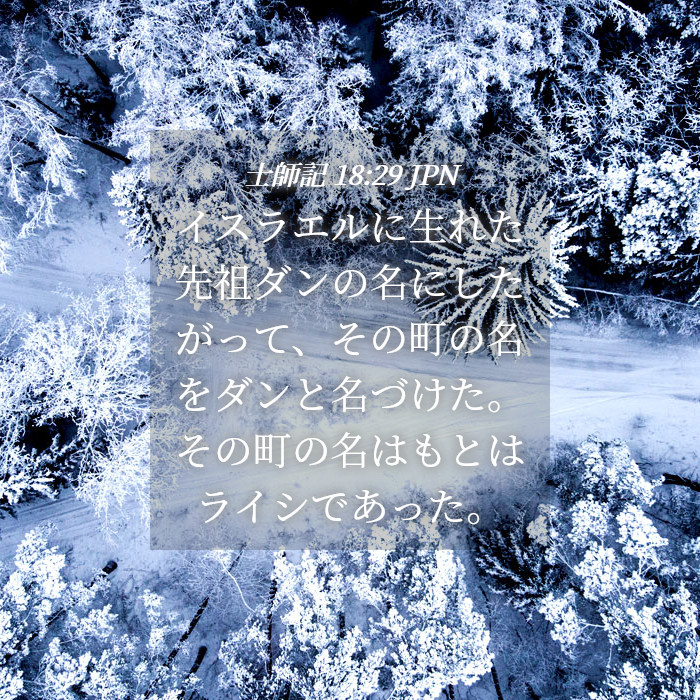 士師記 18:29 JPN
イスラエルに生れた
先祖ダンの名にした
がって、その町の名
をダンと名づけた。
その町の名はもとは
ライシであった。